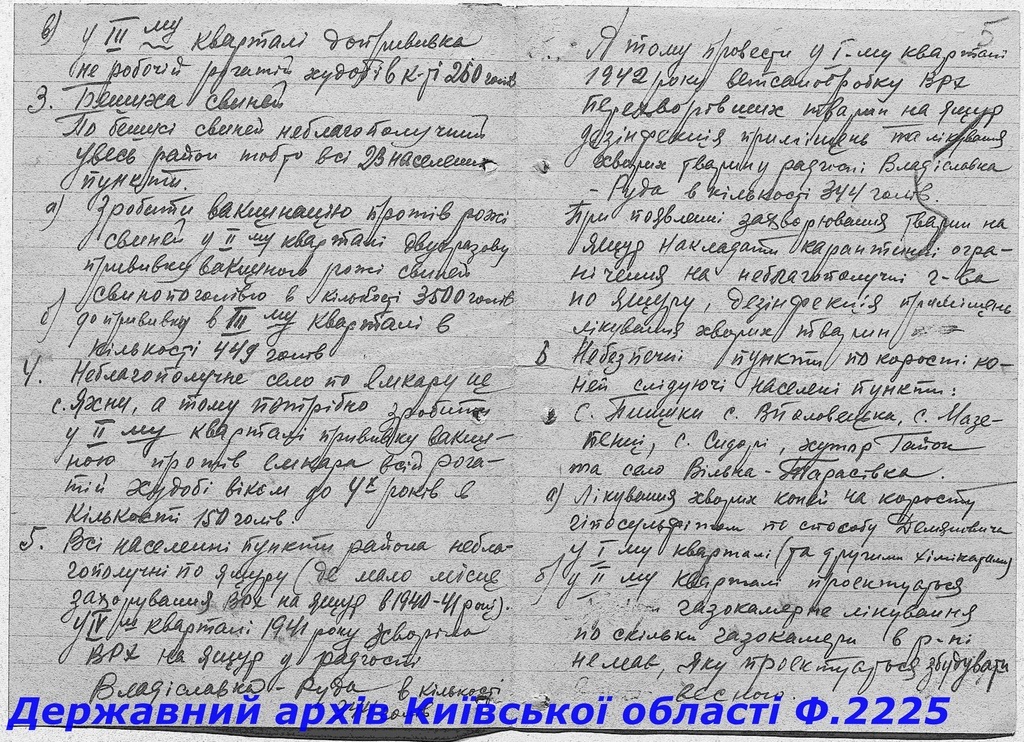 в) у III му кварталі допрививка
не робочій рогатій худобі в к-ті 250 голів
3. Бешиха свиней
По бешисі свиней неблагополучний
увесь район тобто всі 23 населених
пункти.
а) Зробити вакцинацію протів рожі
свиней у II му кварталі двухразову
прививку вакциною рожі свиней
свинопоголівю в кількості 3500 голів
б) допрививку в III му кварталі в
кількості 449 голів
4. Неблагополучне село по емкару це
с. Яхни, а тому потрібно зробити
у II му кварталі прививку вакци-
ною протів емкара всій рога-
тій худобі віком до 4х років в
кількості 150 голів.
5. Всі населенні пункти района небла-
гополучні по ящуру (де мало місце
захорування ВРХ на ящур в 1940-41 році).
У IV му кварталі 1941 року хворіла
ВРХ на ящур у радгоспі
Владіславка - Руда в кількості
голів
5
А тому провести у I-му кварталі
1942 року ветсанобробку ВРХ
перехворівших тварин на ящур
дезінфекція приміщень та лікування
хворих тварин у радгоспі Владіславка
- Руда в кількості 344 голів.
При появленні захворювання тварин на
ящур накладати карантинні огра-
нічення на неблагополучні г-ва
по ящуру, дезінфекція приміщень
лікування хворих тварин
6 Небезпечні пункти по корості ко-
ней слідуючі населені пункти:
с. Пишки с. с. Мазе-
пенці, с. Сидорі, хутор Гайок
та село Вільна - Тарасівка.
а) Лікування хворих коней на коросту
гіпосульфітом по способу Демяновича
у I му кварталі (та другими хімікатами)
б) у II му кварталі проектуається
газокамерне лікування
по скільки газокамери в р-ні
немає, яку проектуається збудувати
весною
Державний архів Київської області Ф.2225